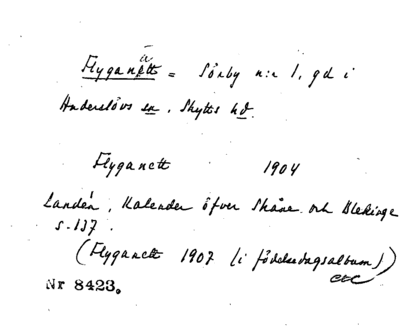 Flyganätt = Sörby n:r 1, gd i
Anderslövs sn. Skytts hd.
Flyganett 1904
Landén, Kalender öfver Skåne och Blekinge
s. 137.
(Flyganett 1907 (i födelsedagsalbum))
Nr 8423.